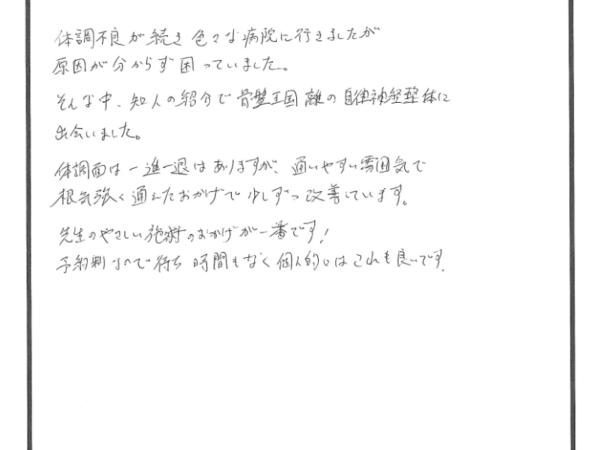 体調不良が続き色々な病院に行きましたが
原因が分からず困っていました。
そんな中、知人の紹介で骨盤王国 離の自律神経整体に
出会いました。
体調面は一進一退はありますが、通いやすい雰囲気で
根気強く通えたおかげで少しずつ改善しています。
先生のやさしい施術のおかげが一番です！
予約制なので待ち時間もなく個人的にはこれも良いです。